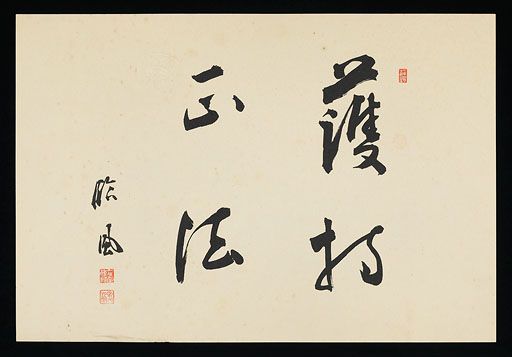 護持
正法
臨風